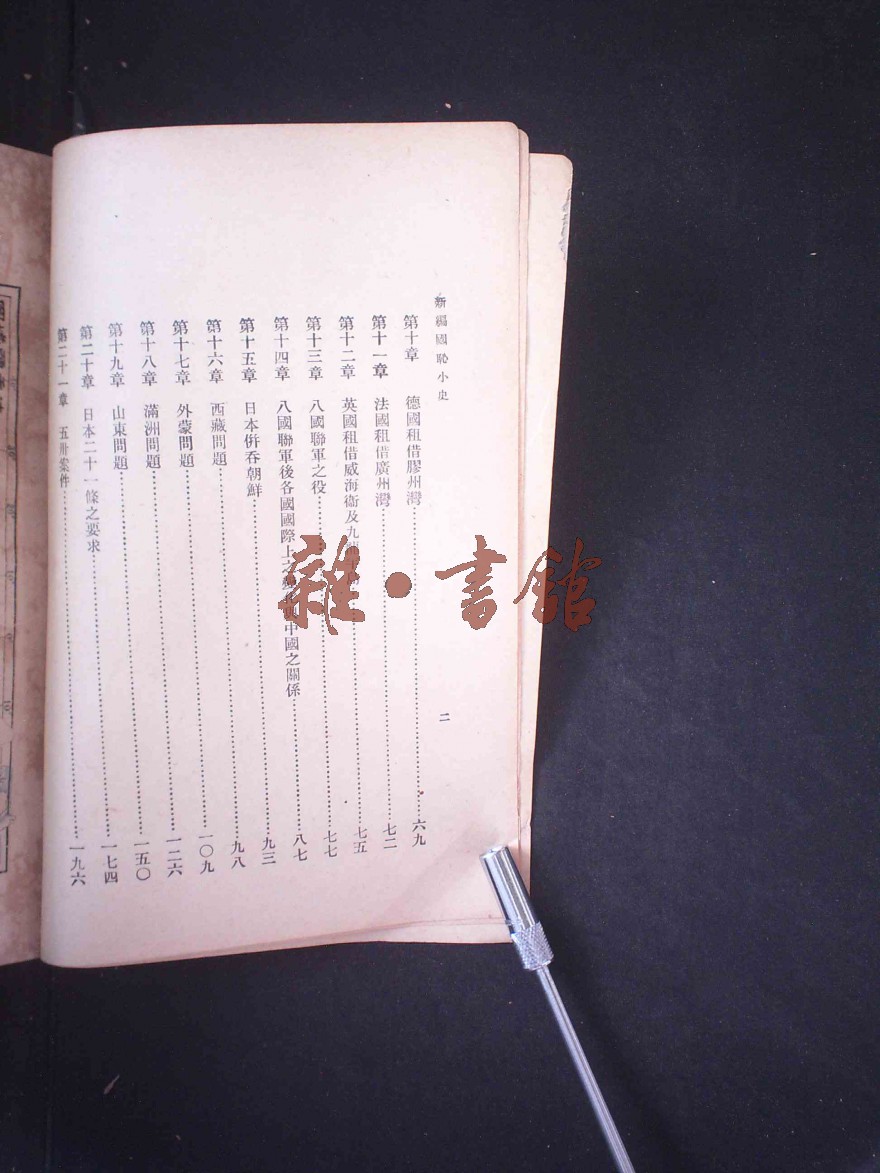 新編國恥小史
二
第十章 德國租借膠州灣 六九
第十一章 法國租借廣州灣 七二
第十二章 英國租借威海衞及九 七五
第十三章 八國聯軍之役 七七
第十四章 八國聯軍後各國國際上之 中國之關係 八七
第十五章 日本併吞朝鮮 九三
第十六章 西藏問題 九八
第十七章 外蒙問題 一〇九
第十八章 滿洲問題 一二六
第十九章 山東問題 一五〇
第二十章 日本二十一條之要求 一七四
第二十一章 五卅案件 一九六
雜·書館